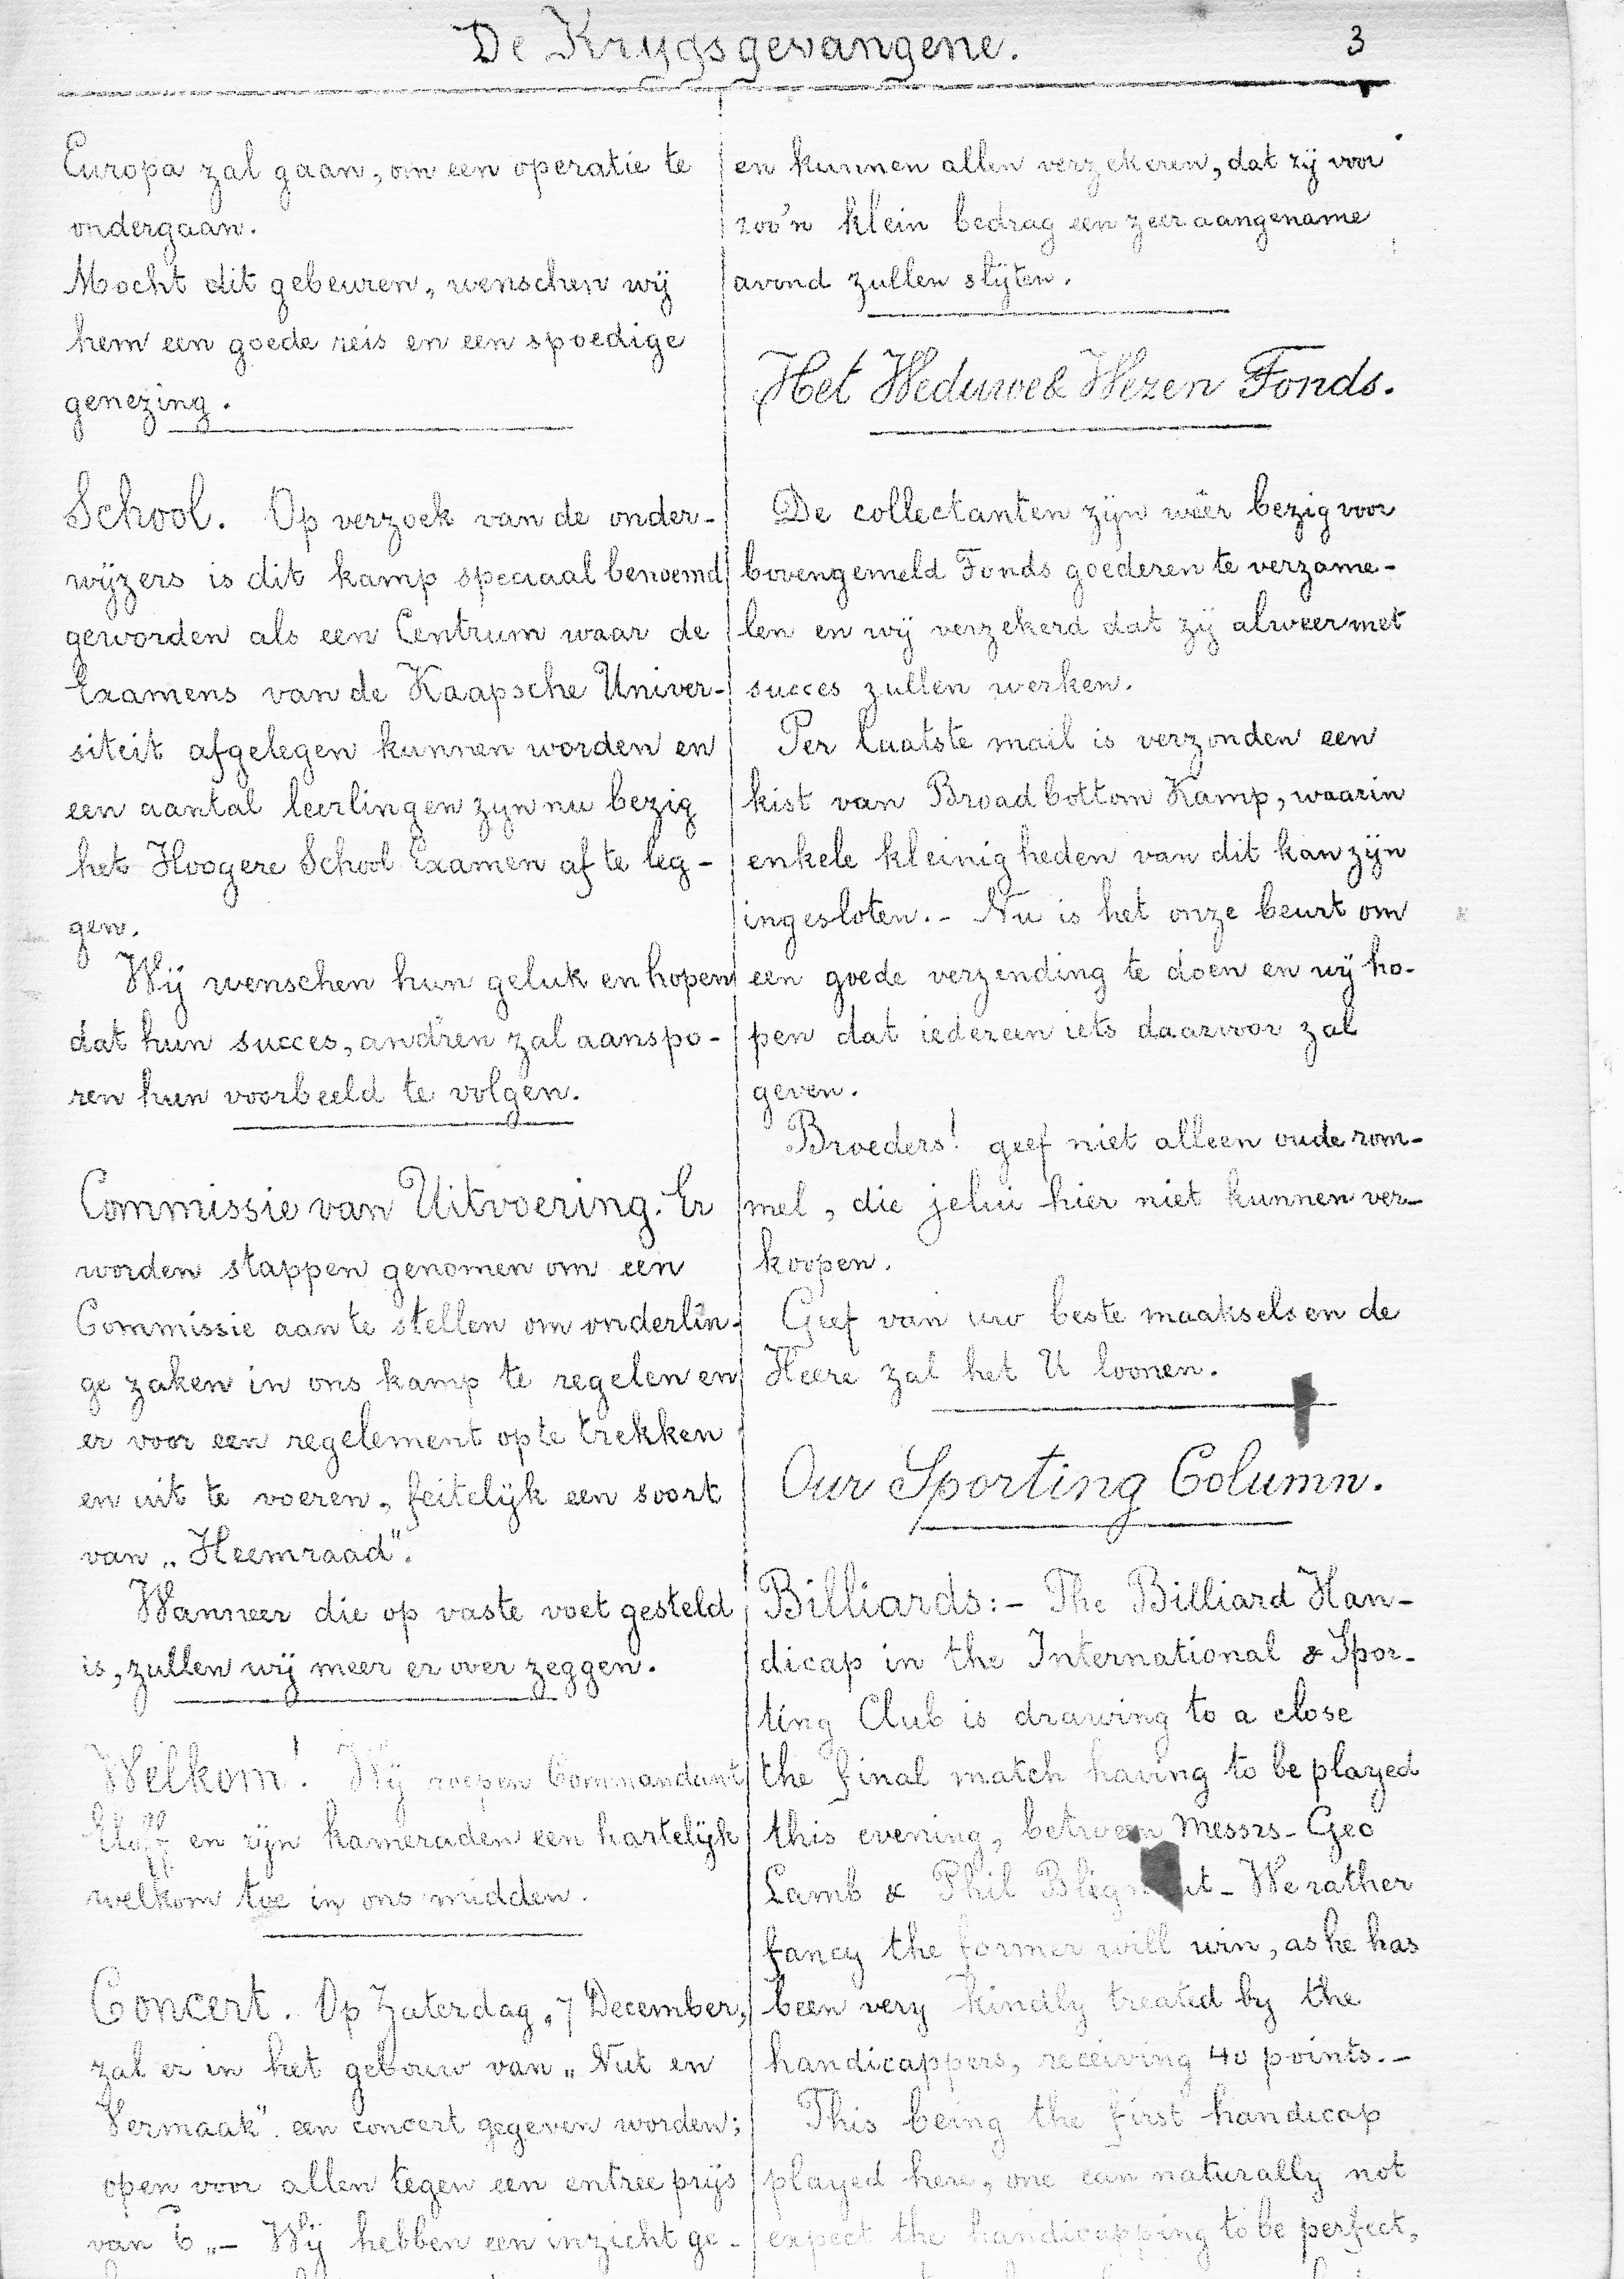 De Krygsgevangene.
3
Europa zal gaan, om een operatie te
ondergaan.
Mocht dit gebeuren, wenschen wij
hem een goede reis en een spoedige
genezing.
School. Op verzoek van de onder-
wijzers is dit kamp speciaal benoemd
geworden als een Centrum waar de
Examens van de Kaapsche Univer-
siteit afgelegen kunnen worden en
een aantal leerlingen zyn nu bezig
het Hoogere School Examen af te leg-
gen.
Wij wenschen hun geluk en hopen
dat hun succes, and'ren zal aanspo-
ren hun voorbeeld te volgen.
Commissie van Uitvoering. Er
worden stappen genomen om een
Commissie aan te stellen om onderlin-
ge zaken in ons kamp te regelen en
er voor een regelement op te trekken
en uit te voeren, feitelijk een soort
van „Heemraad".
Wanneer die op vaste voet gesteld
is, zullen wij meer er over zeggen.
Welkom! Wij roepen Commandant
Eloff en zijn kameraden een hartelijk
welkom toe in ons midden.
Concert. Op Zaterdag, 7 December,
zal er in het gebouw van „Nut en
Vermaak" een concert gegeven worden;
open voor allen tegen een entree prijs
van 6„- Wij hebben een inzicht ge-
en kunnen allen verzekeren, dat zij voor
zoo'n klein bedrag een zeer aangename
avond zullen slijten.
Het Weduwe & Wezen Fonds.
De collectanten zijn wêer bezig voor
bovengemeld Fonds goederen te verzame-
len en wij verzekerd dat zij alweer met
succes zullen werken.
Per laatste mail is verzonden een
kist van Broadbottom Kamp, waarin
enkele kleinigheden van dit kan zijn
ingesloten.- Nu is het onze beurt om
een goede verzending te doen en wij ho-
pen dat iedereen iets daarvoor zal
geven.
Broeders! geef niet alleen oude rom-
mel, die jelui hier niet kunnen ver-
koopen.
Geef van uw beste maaksels en de
Heere zal het U loonen.
Our Sporting Column.
Billiards:- The Billiard Han-
dicap in the International & Spor-
ting Club is drawing to a close
the final match having to be played
this evening, between Messrs- Geo
Lamb & Phil We rather
fancy the former will win, as he has
been very kindly treated by the
handicappers, receiving 40 points.-
This being the first handicap
played here, one can naturally not
expect the handicapping to be perfect,